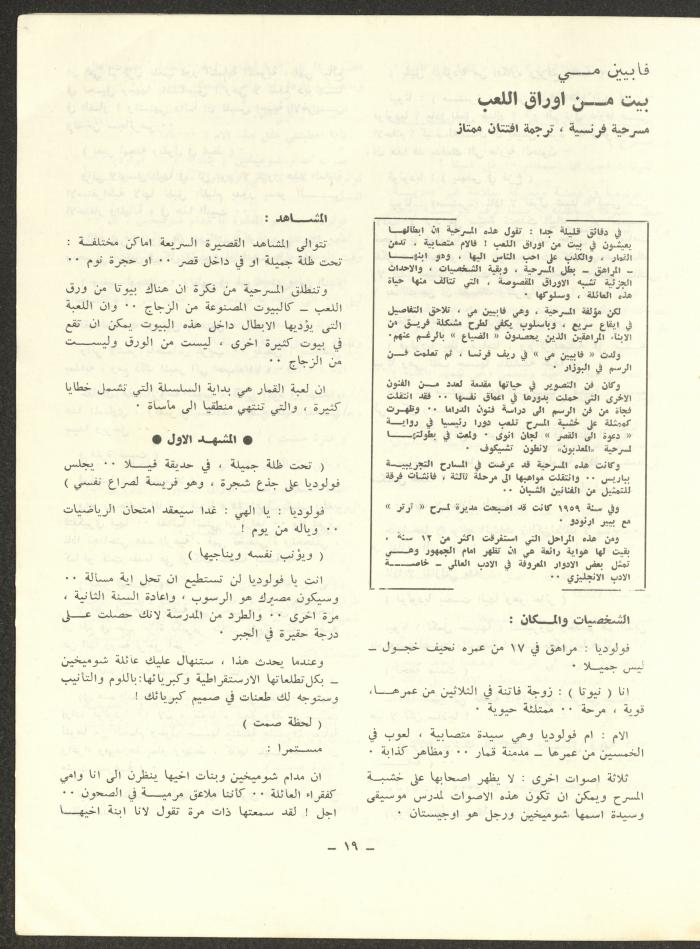 فابيين مــي
بيت مــن اوراق اللعب
مسرحية فرنسية ، ترجمة افتتان ممتاز
في دقائق قليلة جدا : تقول هذه المسرحية ان ابطالهــا
يعيشون في بيت من اوراق اللعب ! فالام متصابية ، تدمن
القمار ، والكذب على احب الناس اليها ، وهو ابنهــا
ــ المراهق ــ بطل المسرحية ، وبقية الشخصيات ، والاحداث
الجزئية تشبه الاوراق المقصوصة ، التي تتالف منها حياة
هذه العائلة ، وسلوكها ٠
لكن مؤلفة المسرحية ، وهي فابيين مي ، تلاحق التفاصيل
في ايقاع سريع ، وباسلوب يكفي لطرح مشكلة فريــق من
الابناء المراهقين الذين يحصدون « الضياع » بالرغــم عنهم٠
ولدت « فابيين مي » في ريف فرنسا ، ثم تعلمت فــن
الرسم في البوزار ٠
وكان فن التصوير في حياتها مقدمة لعدد مــن الفنون
الاخرى التي حملت بذورها في اعماق نفسها ٠٠ فقد انتقلت
فجاة من فن الرسم الى دراسة فنون الدراما ٠٠ وظهــرت
كممثلة على خشبة المسرح تلعب دورا رئيسيا في روايــة
« دعوة الى القصر » لجان انوى ٠ ولعت في بطولتهــا
لمسرحية «المعذبون» لانطون تشيكوف ٠
وكانت هذه المسرحية قد عرضت في المسارح التجريبيــة
بباريس ٠٠ وانتقلت مواهبها الى مرحلة ثالثة ، فانشأت فرقة
للتمثيل من الفنانين الشبان ٠٠
وفي سنة ١٩٥٩ كانت قد اصبحت مديرة لمسرح « ترتر »
مع بيير ارنودو ٠
ومن هذه المراحل التي استغرقت اكثر من ١٢ سنة ،
بقيت لها هواية رائعة هي ان تظهر امام الجمهور وهــي
تمثل بعض الادوار المعروفة في الادب العالمي ــ خاصــة
الادب الانجليزي ٠٠
الشخصيات والمــكان :
فولوديا : مراهق في ١٧ من عمره نحيف خجــول ــ
ليس جميــلا ٠
انا ( نيوتا ) : زوجة فاتنة في الثلاثين من عمرهــا ،
قوية ، مرحة ٠٠ ممتلئة حيوية ٠
الام : ام فولوديا وهي سيدة متصابية ، لعوب في
الخمسين من عمرها ــ مدمنة قمار ٠٠ ومظاهر كذابة ٠
ثلاثة اصوات اخرى : لا يظهر اصحابها على خشبــة
المسرح ويمكن ان تكون هذه الاصوات لمدرس موسيقى
وسيدة اسمها شوميخين ورجل هو اوجيستان ٠
المشــاهد :
تتوالى المشاهد القصيرة السريعة اماكن مختلفــة :
تحت ظلة جميلة او في داخل قصر ٠٠ او حجرة نوم ٠٠
وتنطلق المسرحية من فكرة ان هناك بيوتا من ورق
اللعب ــ كالبيوت المصنوعة من الزجاج ٠٠ وان اللعبة
التى يؤديها الابطال داخل هذه البيوت يمكن ان تقع
في بيوت كثيرة اخرى ، ليست من الورق وليســت
من الزجاج ٠٠
ان لعبة القمار هي بداية السلسلة التي تشمل خطايا
كثيرة ، والتي تنتهي منطقيا الى مأساة ٠
● المشهد الاول ●
( تحت ظلة جميلة ، في حديقة فيــلا ٠٠ يجلس
فولوديا على جذع شجرة ، وهو فريسة لصراع نفسي )
فولوديا : يا الهي : غدا سيعقد امتحان الرياضيات
٠٠ وياله من يوم !
( ويؤنب نفسه ويناجيها )
انت يا فولوديا لن تستطيع ان تحل اية مسألة ٠٠
وسيكون مصيرك هو الرسوب ، واعادة السنة الثانية ،
مرة اخرى ٠٠ والطرد من المدرسة لانك حصلت علــى
درجة حقيرة في الجبر ٠
وعندما يحدث هذا ، ستنهال عليك عائلة شوميخين
ــ بكل تطلعاتها الارستقراطية وكبريائها : باللوم والتأنيب
وستوجه لك طعنات في صميم كبريائك !
( لحظة صمت )
مستمرا :
ان مدام شوميخين وبنات اخيها ينظرن الى انا وامي
كفقراء العائلة ٠٠ كأننا ملاعق مرميــة في الصحون ٠٠
اجل ! لقد سمعتها ذات مرة تقول لانا ابنة اخيهــا
ــ ١٩ ــ